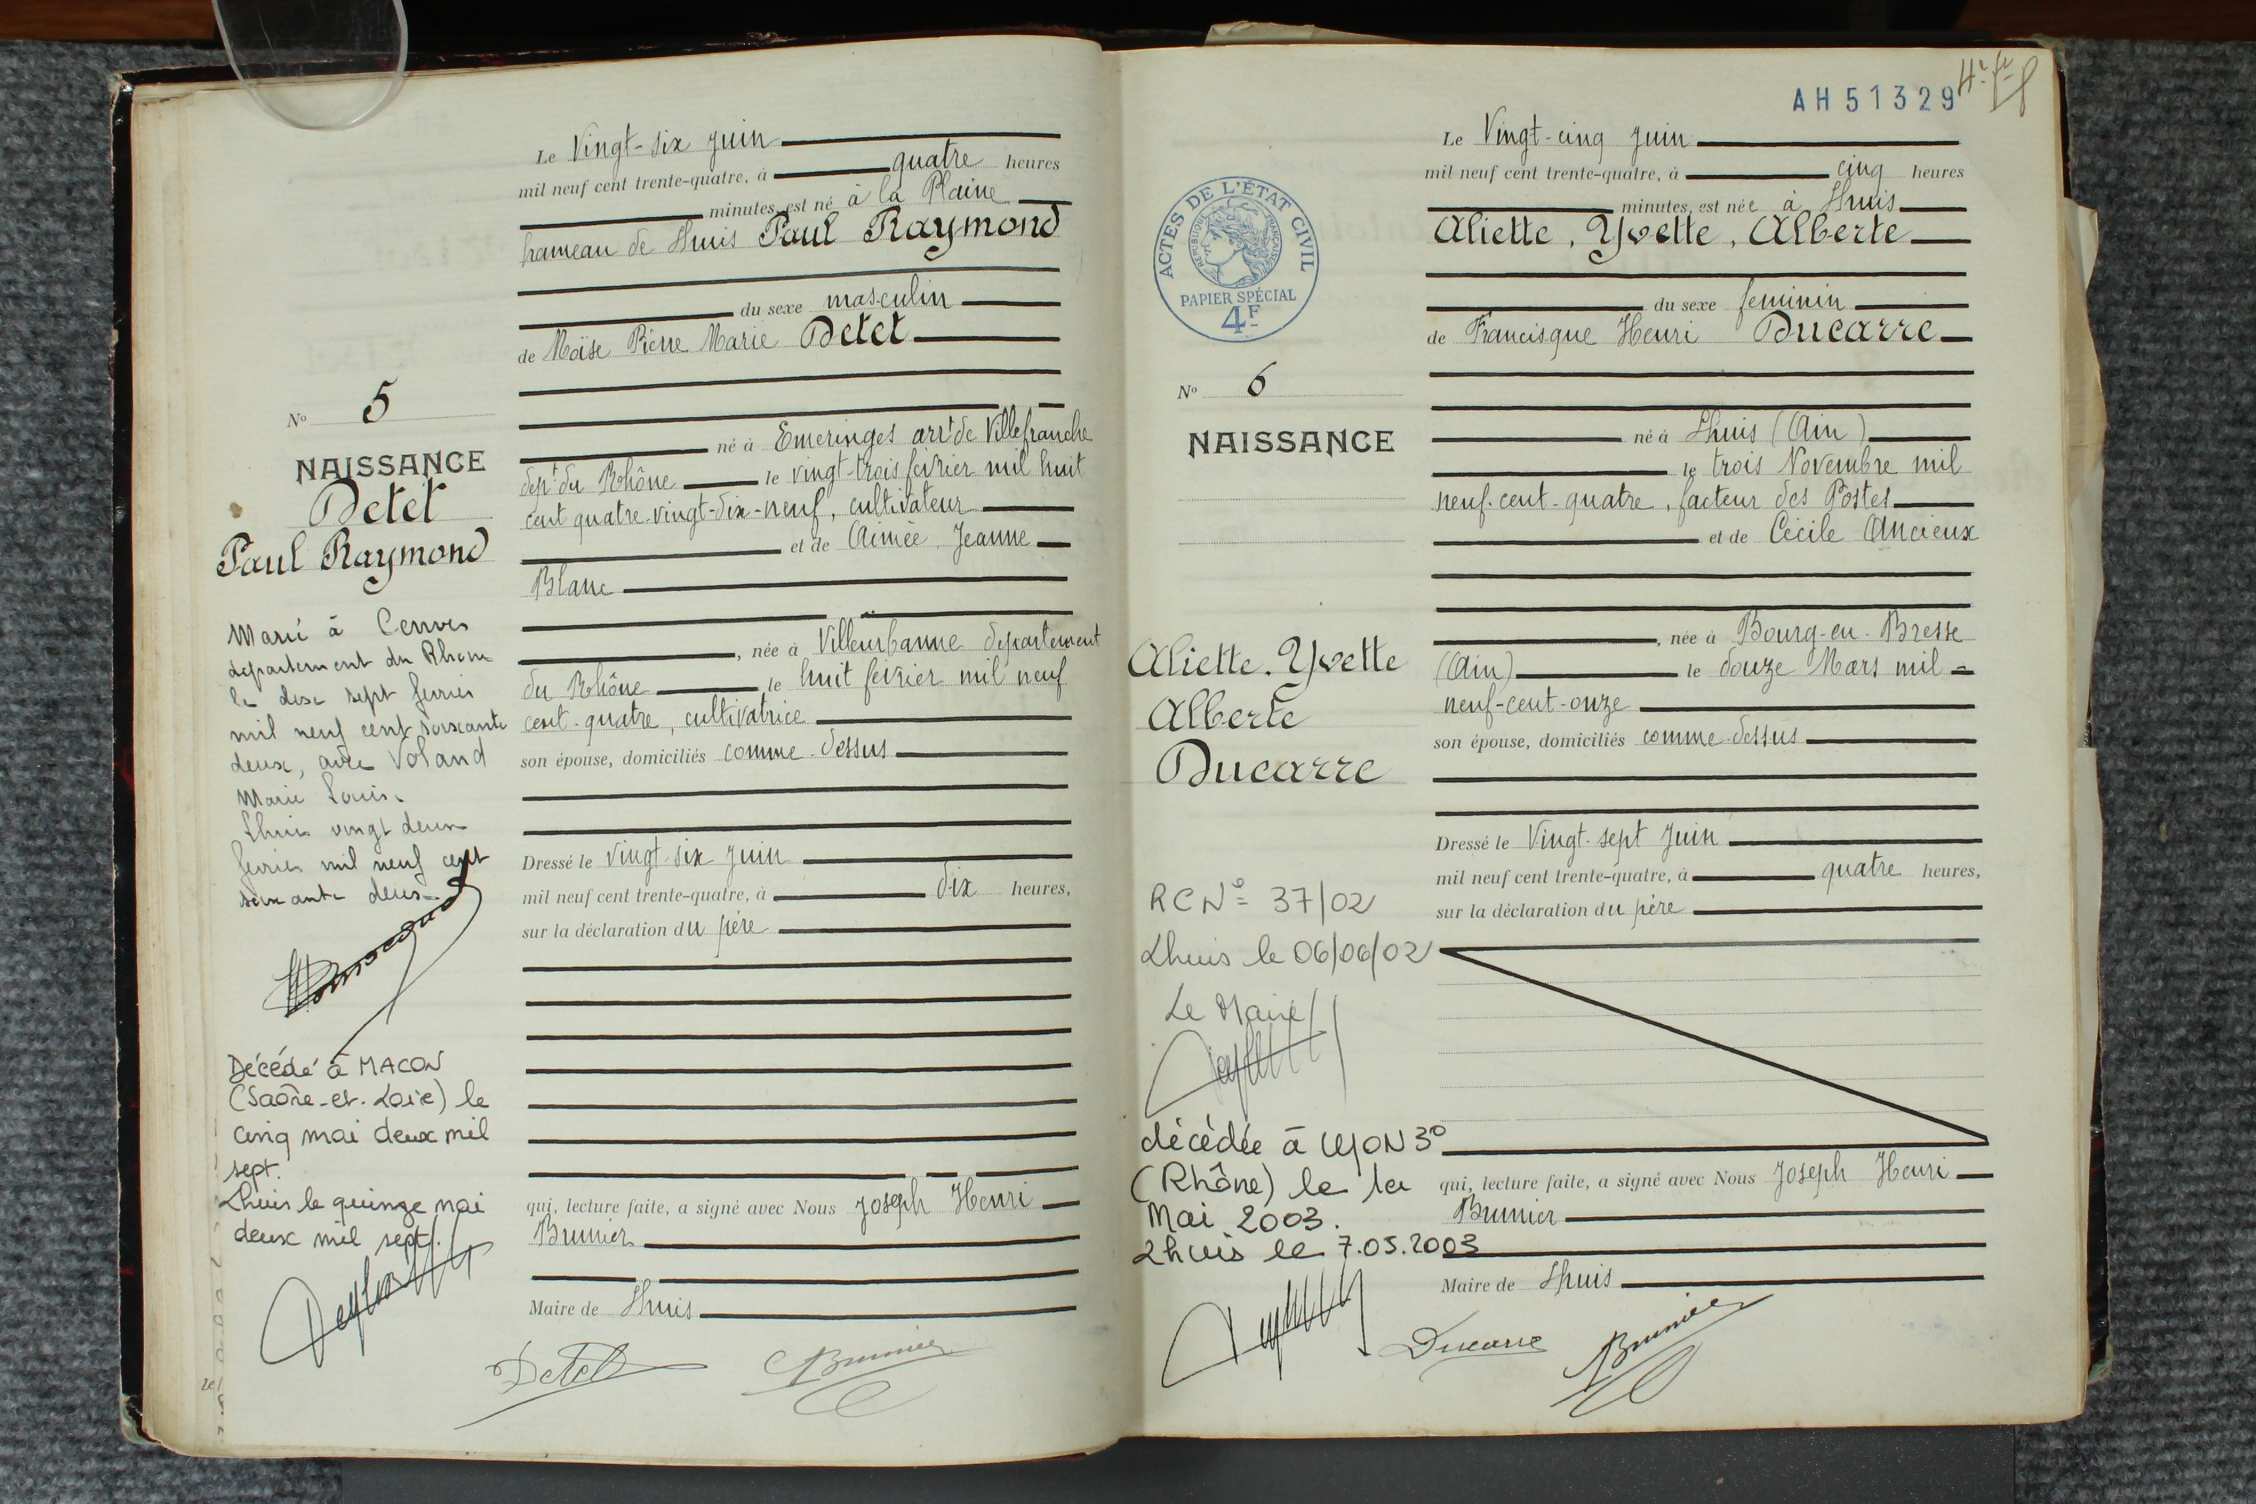 Le Vingt-six juin
mil neuf cent trente-quatre, à quatre heures
minutes, est né à la Plaine
hameau de Lhuis Paul Raymond
du sexe masculin
de Moïse Pierre Marie Detet
né à Emeringes arrt de Villefranche
dept du Rhône le vingt-trois février mil huit
cent quatre-vingt-dix-neuf, cultivateur
et de Aimée Jeanne
Blanc
, née à Villeurbanne département
du Rhône le huit février mil neuf
cent-quatre, cultivatrice
son épouse, domiciliés comme-dessus
Dressé le vingt-six juin
mil neuf cent trente-quatre, à dix heures,
sur la déclaration du père
qui, lecture faite, a signé avec Nous Joseph Henri
Brunier
Maire de Lhuis
Detet Brunier
No 5
NAISSANCE
Detet
Paul Raymond
Marié à Cenves
département du Rhône
le dix sept février
mil neuf cent soixante
deux, avec Voland
Marie Louise
Lhuis vingt deux
février mil neuf cent
soixante deux
Décédé à MACON
(Saône-et-Loire) le
cinq mai deux mil
sept.
Lhuis le quinze mai
deux mil sept.
AH51329
Le Vingt-cinq juin
mil neuf cent trente-quatre, à cinq heures
minutes, est née à Lhuis
Aliette, Yvette, Alberte
du sexe feminin
de Francisque Henri Ducarre
né à Lhuis (Ain)
le trois Novembre mil
neuf-cent-quatre, facteur des Postes
et de Cécile Ancieux
, née à Bourg-en-Bresse
(Ain) le douze Mars mil
neuf-cent-onze
son épouse, domiciliés comme-dessus
Dressé le Vingt-sept juin
mil neuf cent trente-quatre, à quatre heures,
sur la déclaration du père
qui, lecture faite, a signé avec Nous Joseph Henri
Brunier
Maire de Lhuis
Ducarre Brunier
ACTES DE L'ÉTAT CIVIL
RÉPUBLIQUE FRANÇAISE
PAPIER SPÉCIAL
4F
No 6
NAISSANCE
Aliette. Yvette
Alberte
Ducarre
RC No 37/02
Lhuis le 06/06/02
Le Maire
décédée à LYON 3°
(Rhône) le 1er
Mai 2003.
Lhuis le 7.05.2003